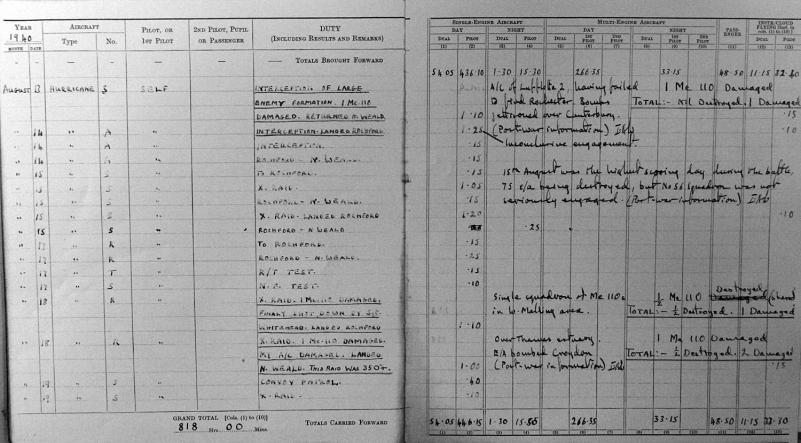 YEAR
1940
MONTH DATE
AIRCRAFT
Type No.
PILOT, OR
1ST PILOT
2ND PILOT, PUPIL
OR PASSENGER
DUTY
(INCLUDING RESULTS AND REMARKS)
— — — — — — TOTALS BROUGHT FORWARD
AUGUST 13 HURRICANE S SELF INTERCEPTION OF LARGE
ENEMY FORMATION. 1 ME.110
DAMAGED. RETURNED N. WEALD
" 14 " A " INTERCEPTION. LANDED ROCHFORD.
" 14 " A " INTERCEPTION.
" 14 " A " ROCHFORD - N. WEALD.
" 15 " S " TO ROCHFORD.
" 15 " S " X. RAID.
" 15 " S " ROCHFORD - N. WEALD.
" 15 " S " X. RAID. LANDED ROCHFORD
" 15 " S " ROCHFORD - N. WEALD
" 17 " R " TO ROCHFORD.
" 17 " R " ROCHFORD - N. WEALD.
" 17 " T " R/T TEST.
" 17 " S " TEST.
" 18 " R " X. RAID. 1 ME.110 DAMAGED,
FINALLY SHOT DOWN BY
WHITEHEAD. LANDED ROCHFORD
" 18 " R " X. RAID. 1 ME.110 DAMAGED.
MY A/C DAMAGED. LANDED
N. WEALD. THIS RAID WAS 350+.
" 19 " S " CONVOY PATROL.
" 19 " S " X. RAID.
GRAND TOTAL [Cols. (1) to (10)]
818 Hrs. 00 Mins.
TOTALS CARRIED FORWARD
SINGLE-ENGINE AIRCRAFT
MULTI-ENGINE AIRCRAFT
PASS-
ENGER
INSTR/CLOUD
FLYING [Incl. in
cols. (1) to (10)]
DAY NIGHT DAY NIGHT
DUAL PILOT DUAL PILOT DUAL 1ST PILOT 2ND PILOT DUAL 1ST PILOT 2ND PILOT DUAL PILOT
(1) (2) (3) (4) (5) (6) (7) (8) (9) (10) (11) (12) (13)
54.05 436.10 1.30 15.30 266.35 33.15 48.50 11.15 32.40
A/C of Luftflotte 2, having failed 1 Me 110 Damaged
to find Rochester. Bombs TOTAL:- Nil Destroyed. 1 Damaged
1.10 jettisoned over Canterbury. .15
1.25 (Post-war information) .10
.15 Inconclusive engagement.
.15
.15 15th August was the highest scoring day during the battle,
1.05 75 e/a being destroyed, but No 56 squadron was not
.15 seriously engaged. (Post-war information)
1.20 .10
.25
.15
.25
.15
.10
Single squadron of Me 110s ½ Me 110 Destroyed
in W. Malling area. TOTAL:- ½ Destroyed. 1 Damaged
1.10
Over Thames estuary. 1 Me 110 Damaged
E/A bombed Croydon TOTAL:- ½ Destroyed. 2 Damaged
1.00 (Post-war information) .15
.40
.10
54.05 446.15 1.30 266.35 33.15 48.50 11.15
(1) (2) (3) (4) (5) (6) (7) (8) (9) (10) (11) (12) (13)